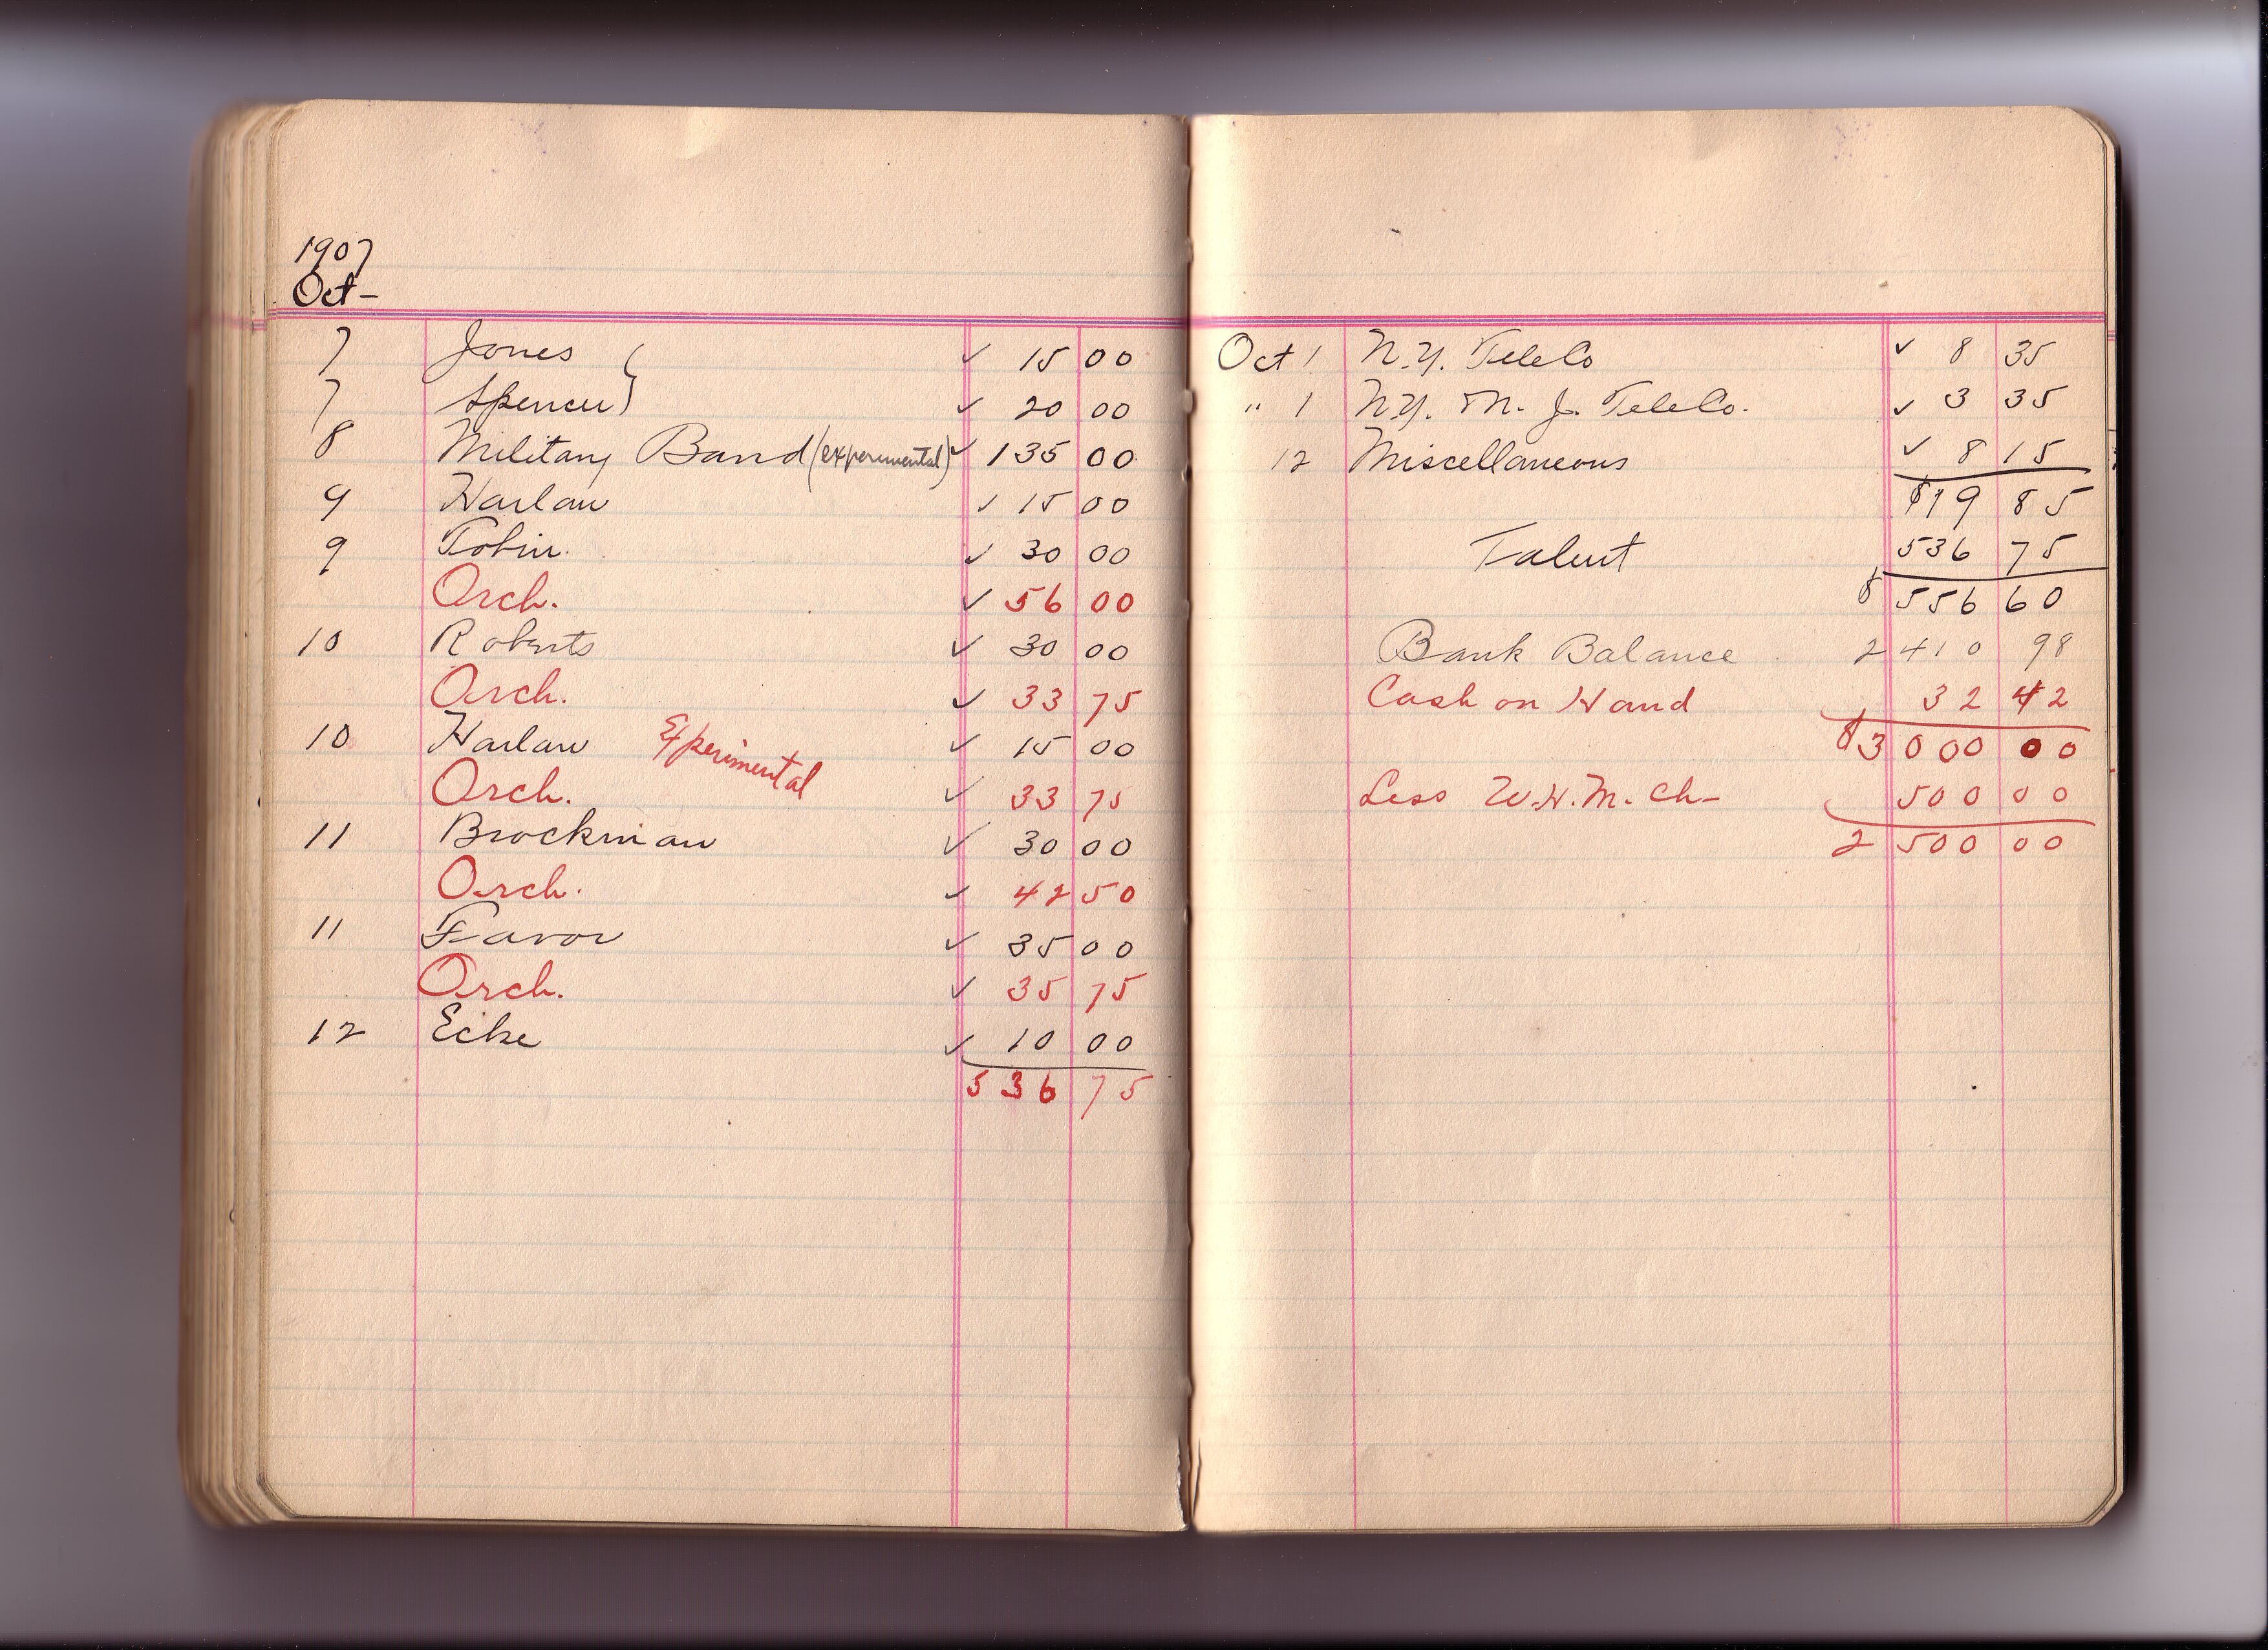 1907
Oct-
7 Jones ✓ 15 00
7 Spencer ✓ 20 00
8 Military Band (experimental) ✓ 135 00
9 Harlan ✓ 15 00
9 Tobin. ✓ 30 00
Orch. ✓ 56 00
10 Roberts ✓ 30 00
Orch. ✓ 33 75
10 Harlan Experimental ✓ 15 00
Orch. ✓ 33 75
11 Brockman ✓ 30 00
Orch. ✓ 42 50
11 Favor ✓ 35 00
Orch. ✓ 35 75
12 Ecke ✓ 10 00
536 75
Oct 1 N.Y. Tele Co ✓ 8 35
" 1 N.Y. N. J. Tele Co. ✓ 3 35
12 Miscellaneous ✓ 8 15
$19 85
Talent 536 75
$ 556 60
Bank Balance 2 410 98
Cash on Hand 32 42
$3 000 00
Less W.H.M. Ch- 500 00
2 500 00